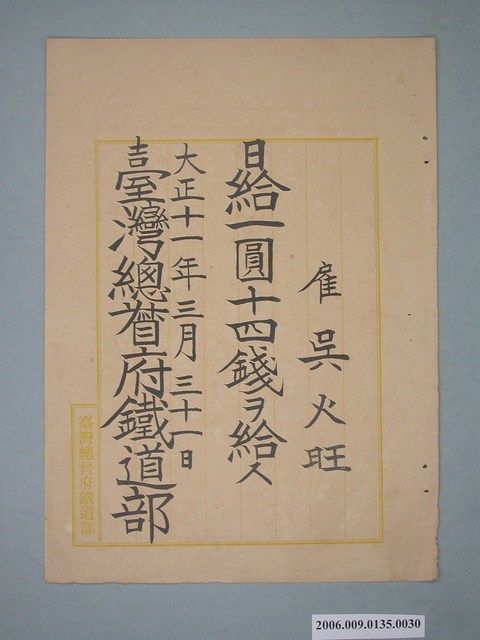 雇 吳火旺
日給一圓十四錢ヲ給ス
大正十一年三月三十一日
臺灣總督府鐵道部
臺灣總督府鐵道部
2006.009.0135.0030